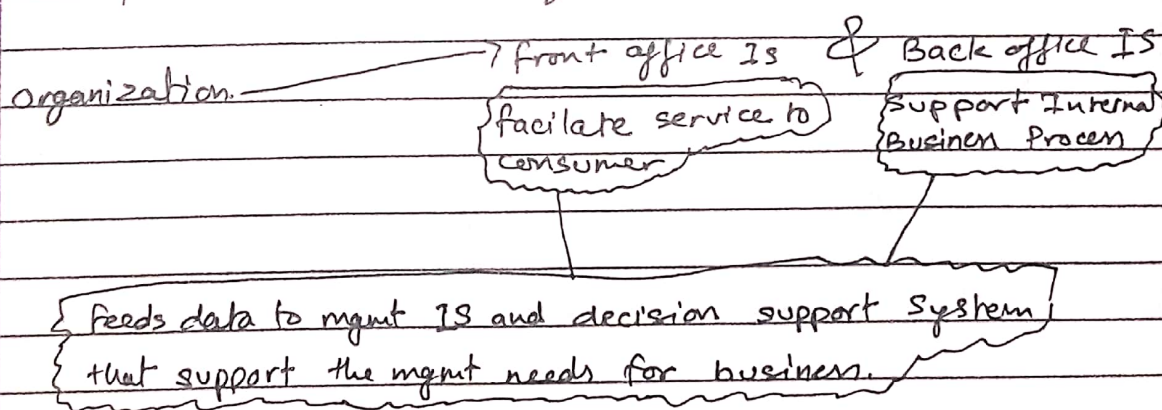 Organization. → front office Is & Back office IS
facilate service to
consumer
Support Internal
Business Process
feeds data to mgmt IS and decision support system
that support the mgmt needs for business.